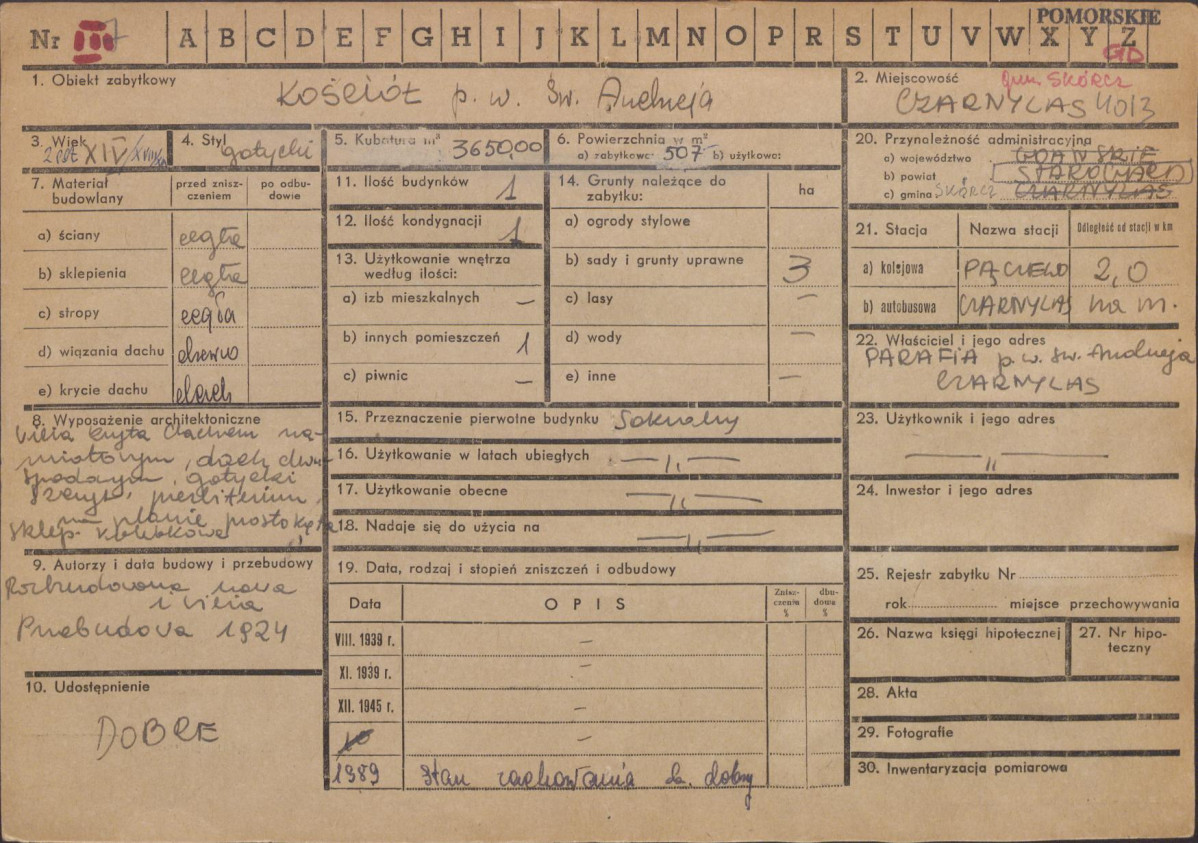 POMORSKIE
Nr III A B C D E F G H I J K L M N O P R S T U V W X Y Z
GD
1. Obiekt zabytkowy
Kościół p. w. Św. Andrzeja
2. Miejscowość gm. SKÓRCZ
CZARNYLAS
3. Wiek
XIV
4. Styl
gotycki
5. Kubatura m³
3650,00
6. Powierzchnia w m²
a) zabytkowe: 507 b) użytkowe:
20. Przynależność administracyjna
a) województwo GDAŃSKIE
b) powiat STAROGARD
c) gmina SKÓRCZ CZARNYLAS
7. Materiał budowlany
przed zniszczeniem
po odbudowie
a) ściany cegła
b) sklepienia cegła
c) stropy cegła
d) wiązania dachu drewno
e) krycie dachu
11. Ilość budynków 1
12. Ilość kondygnacji 1
13. Użytkowanie wnętrza
według ilości:
a) izb mieszkalnych —
b) innych pomieszczeń 1
c) piwnic —
14. Grunty należące do
zabytku:
ha
a) ogrody stylowe
b) sady i grunty uprawne 3
c) lasy —
d) wody —
e) inne —
21. Stacja Nazwa stacji Odległość od stacji w km
a) kolejowa PĄCZEWO 2,0
b) autobusowa CZARNYLAS na m.
22. Właściciel i jego adres
PARAFIA p. w. św. Andrzeja
CZARNYLAS
8. Wyposażenie architektoniczne
wieża kryta dachem na-
miotowym, dach dwu-
spadowym, gotycki
szczyt, prezbiterium
na planie prostokąta
sklep. kolebkowe
15. Przeznaczenie pierwotne budynku Sakralny
16. Użytkowanie w latach ubiegłych —,,—
17. Użytkowanie obecne —,,—
18. Nadaje się do użycia na —,,—
23. Użytkownik i jego adres
—,,—
24. Inwestor i jego adres
9. Autorzy i data budowy i przebudowy
Rozbudowana nawa
i wieża
Przebudowa 1924
19. Data, rodzaj i stopień zniszczeń i odbudowy
Data OPIS Zniszczenia % dbudowa %
VIII. 1939 r. —
XI. 1939 r. —
XII. 1945 r. —
—
1989 Stan zachowania b. dobry
10. Udostępnienie
DOBRE
25. Rejestr zabytku Nr
rok miejsce przechowywania
26. Nazwa księgi hipotecznej
27. Nr hipoteczny
28. Akta
29. Fotografie
30. Inwentaryzacja pomiarowa